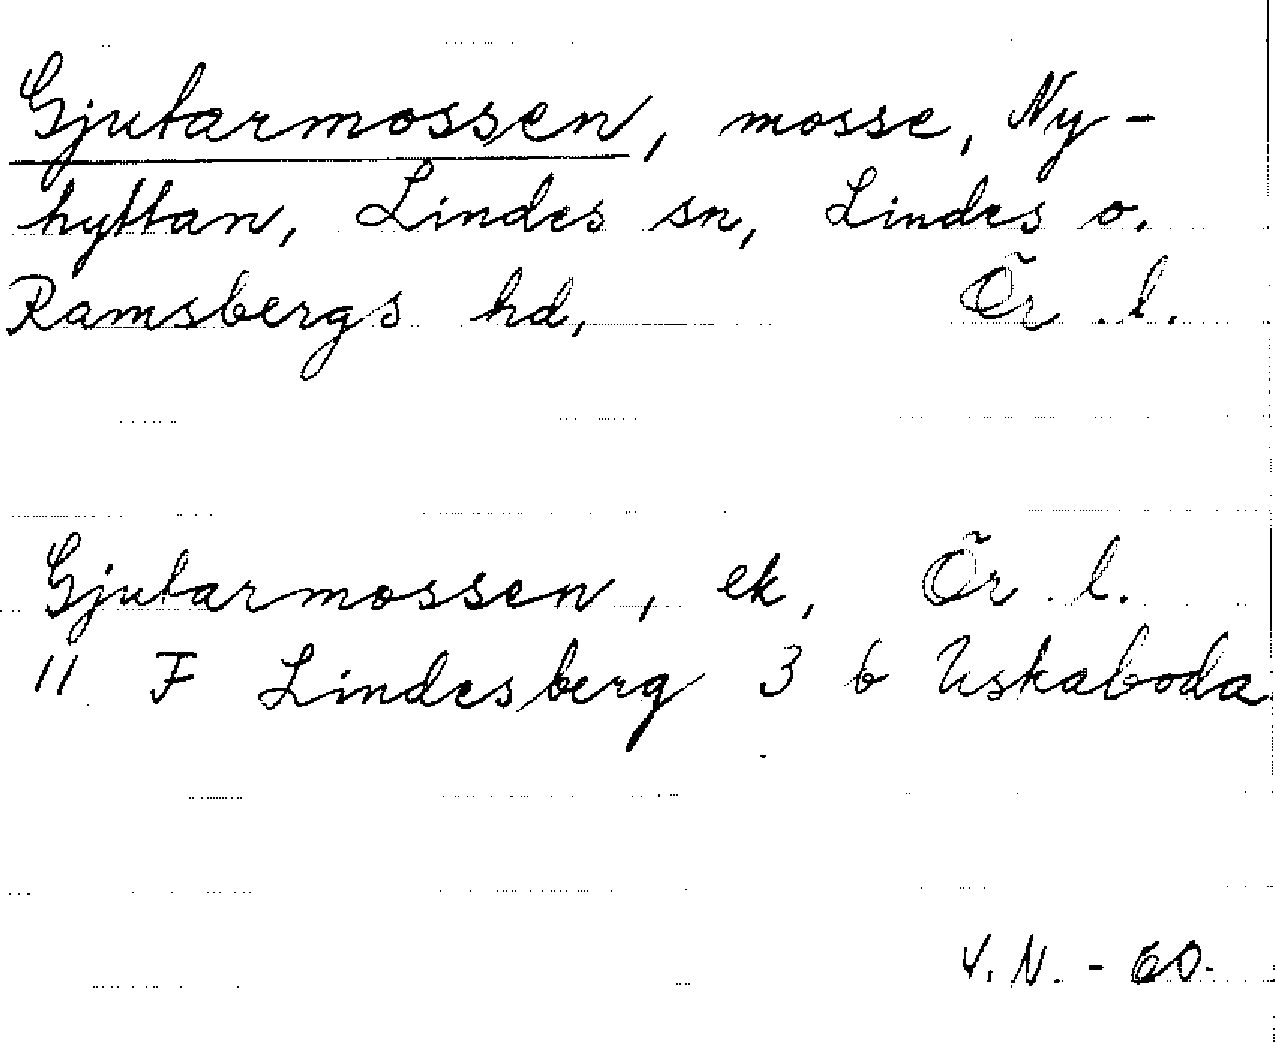 Gjutarmossen, mosse, Ny-
hyttan, Lindes sn, Lindes o.
Ramsbergs hd, Ör. l.
Gjutarmossen, ek, Ör. l.
11 F Lindesberg 3 b Uskaboda
V. N. - 60.